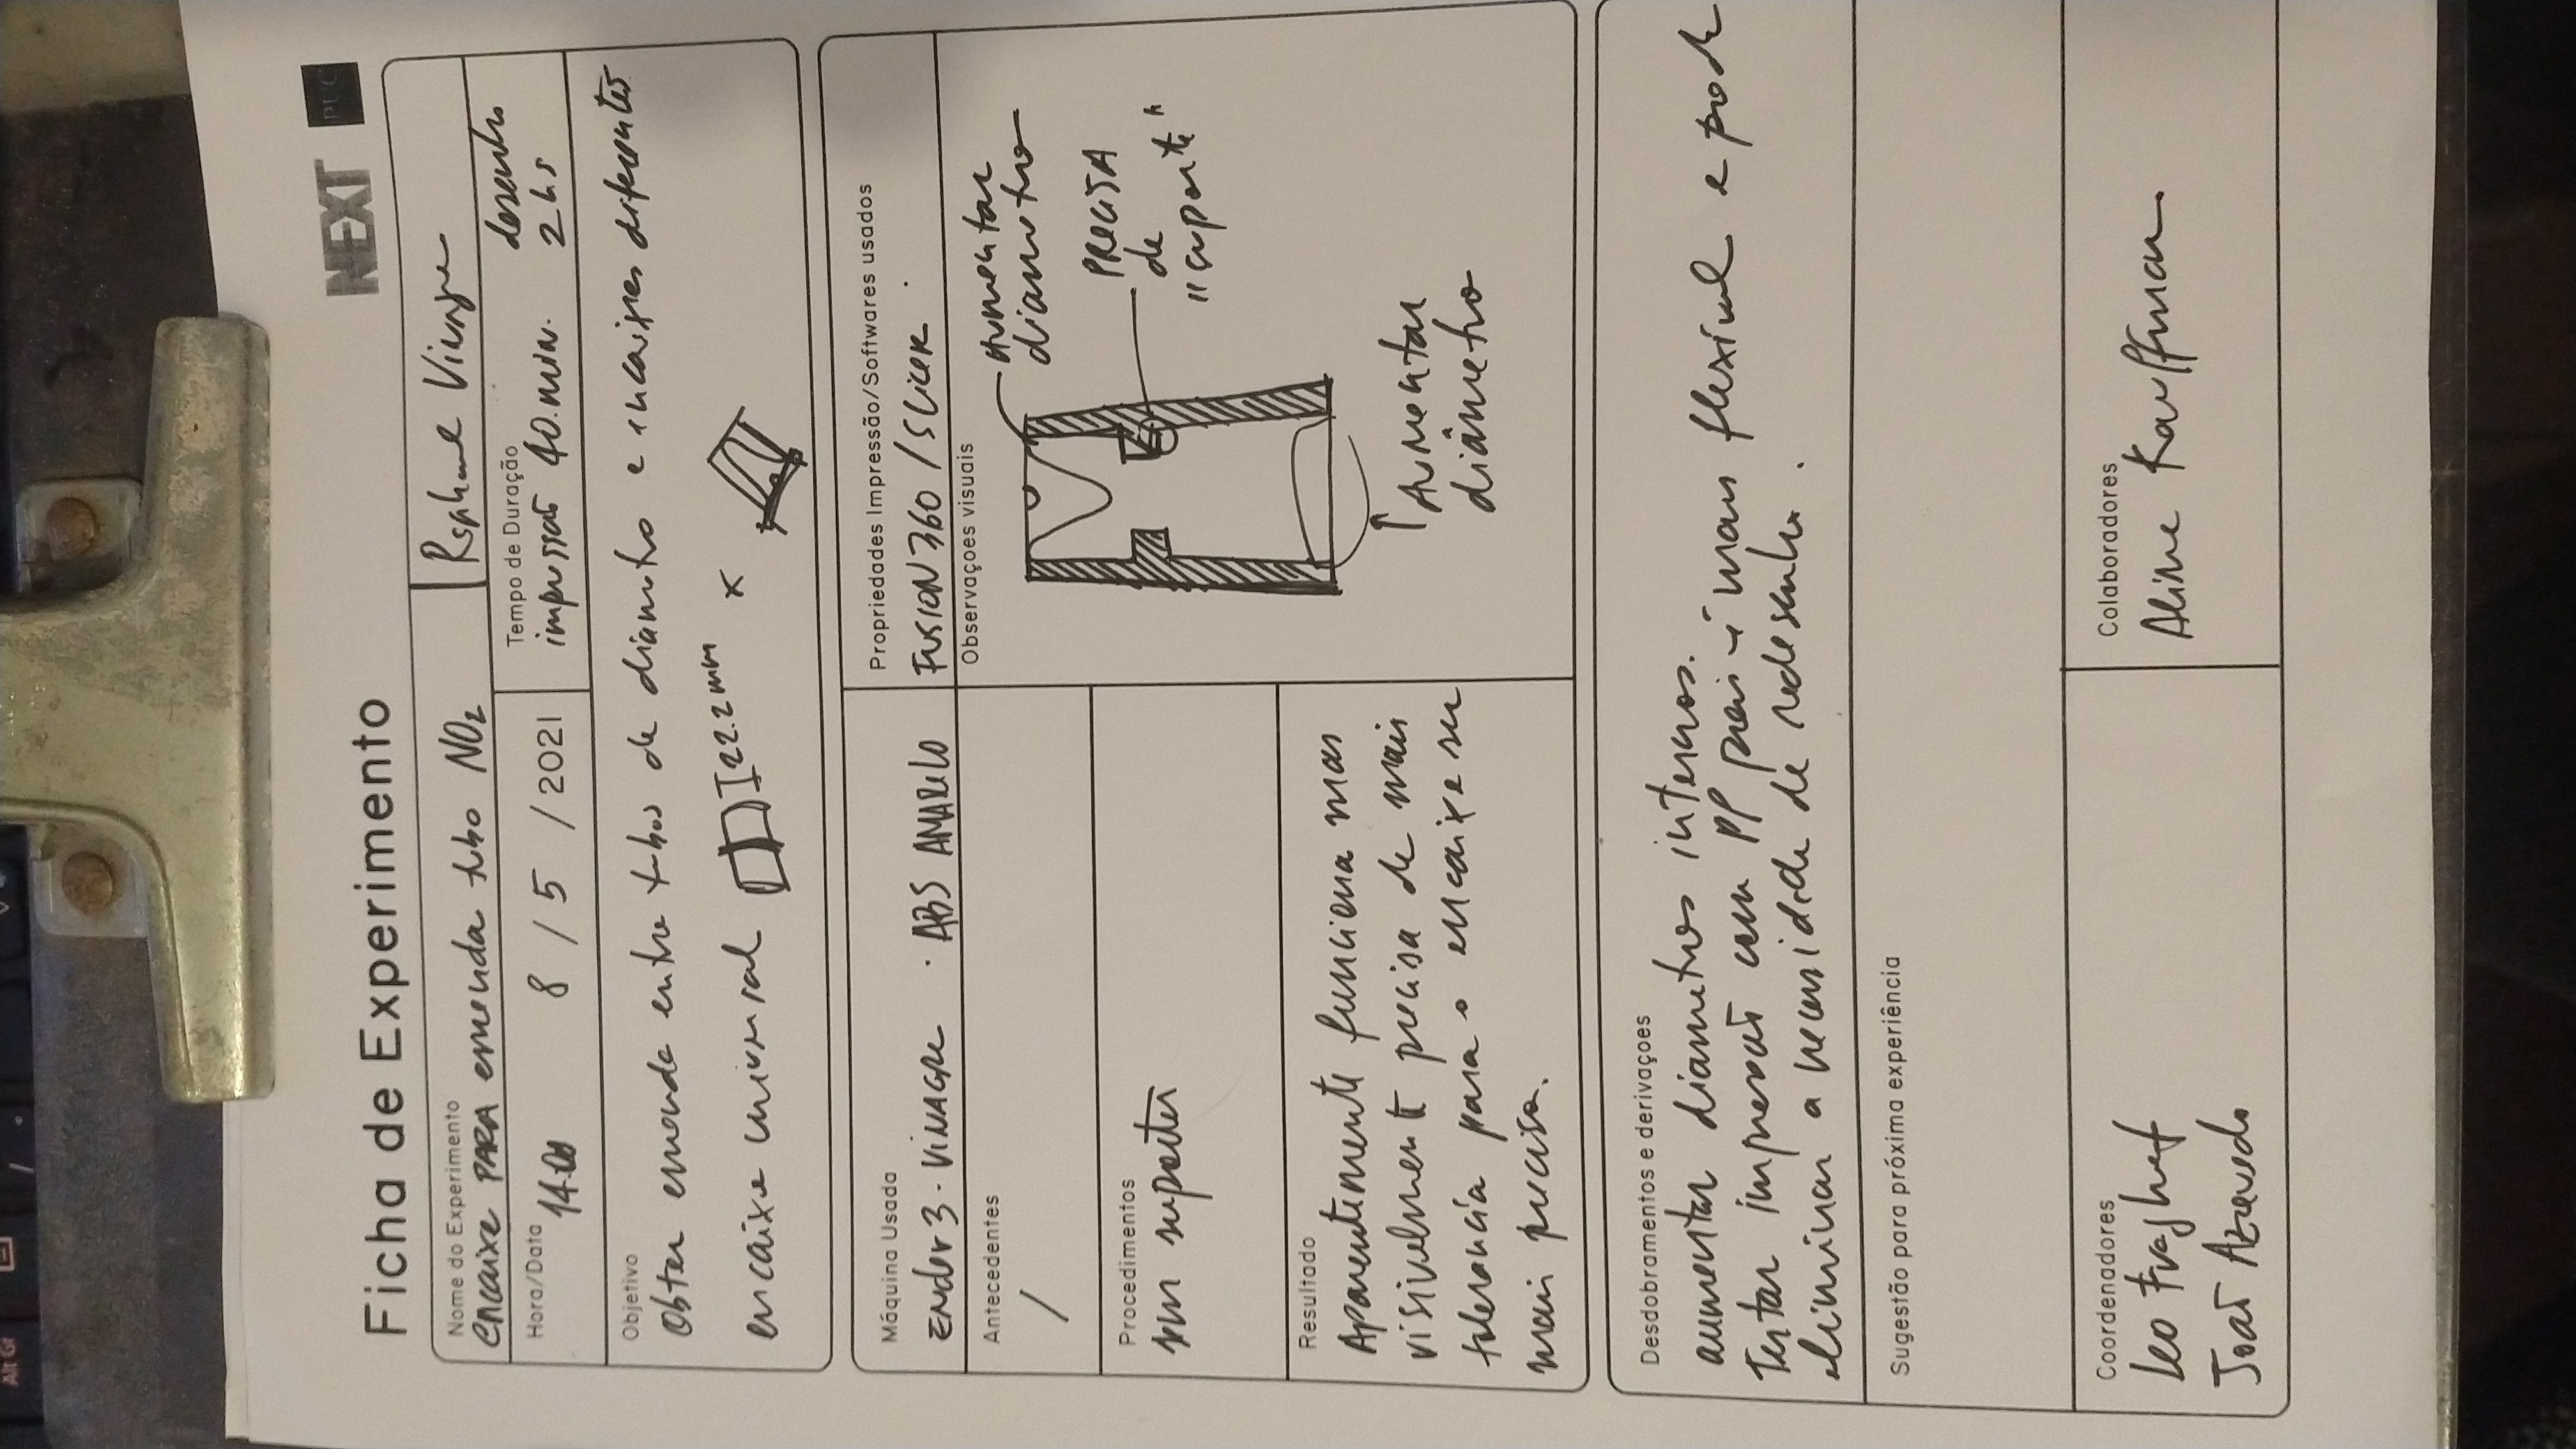 Alt Gr
NEXT PUC
Ficha de Experimento
Nome do Experimento
encaixe PARA emenda tubo NO2
Raphael Vinagre
Hora/Data 14:00 8 / 5 / 2021
Tempo de Duração
impressão 40.min.
desenho
2hs
Objetivo
Obter emenda entre tubos de diametro e encaixes diferentes
encaixe universal 22.2mm x
Máquina Usada
Ender 3 - VINAGRE - ABS AMARELO
Propriedades Impressão/Softwares usados
FUSION 360 / SLICER
Antecedentes
/
Observaçoes visuais
Aumentar
diametro
PRECISA
de
"suporte"
Aumentar
diâmetro
Procedimentos
sem suportes
Resultado
Aparentemente funciona mas
visivelmente precisa de mais
tolerancia para o encaixe ser
mais preciso.
Desdobramentos e derivaçoes
aumentar diametros internos.
Testar impressão com PP pois é mais flexível e pode
eliminar a necessidade de redesenho.
Sugestão para próxima experiência
Coordenadores
Leo
João Azevedo
Colaboradores
Aline Kauffmann